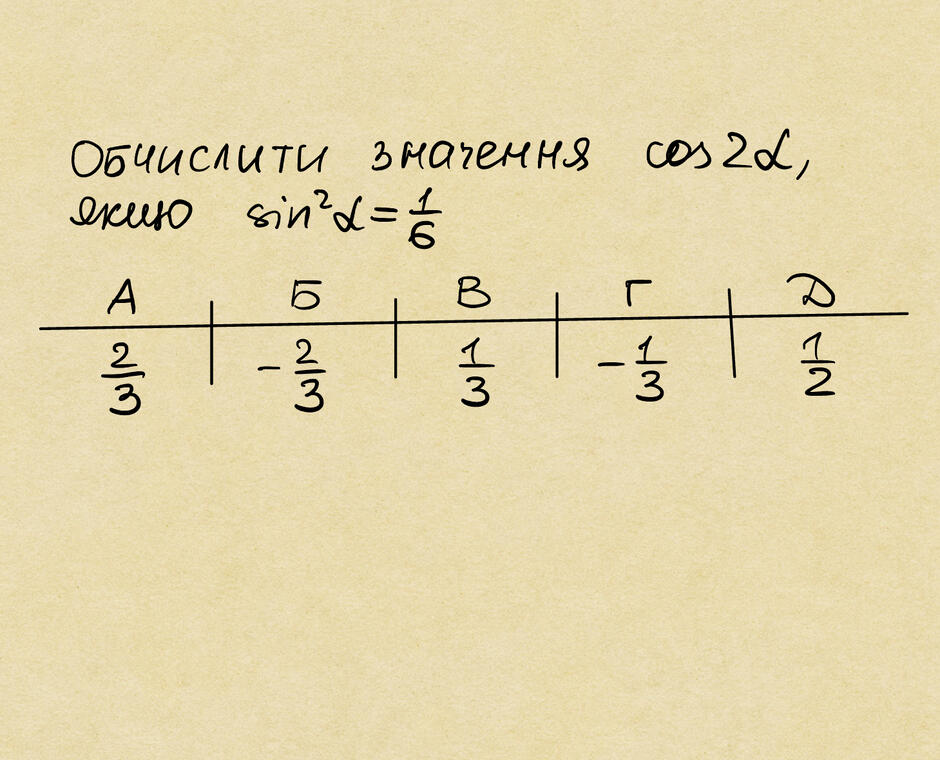 Обчислити значення cos2α,
якщо sin²α = 1/6
А | Б | В | Г | Д
2/3 | -2/3 | 1/3 | -1/3 | 1/2